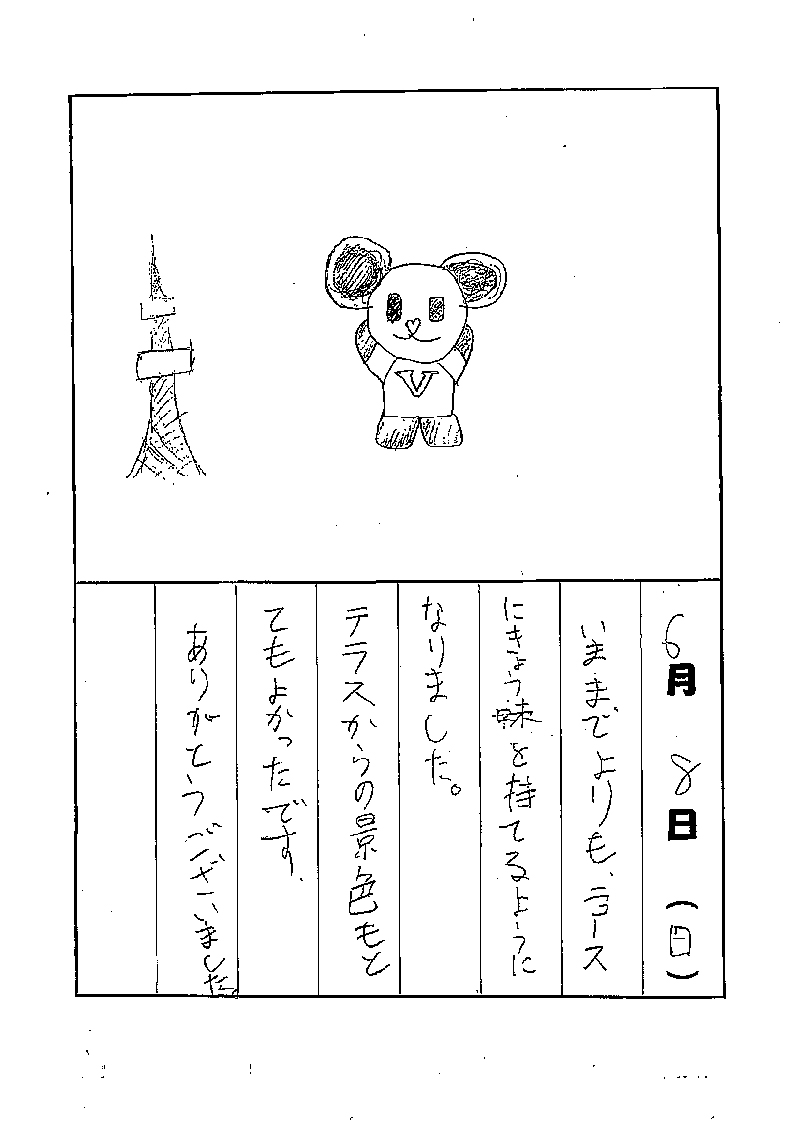 V
6月 8日 (日)
いままでよりも、ニュース
にきょう味を持てるように
なりました。
テラスからの景色もと
てもよかったです。
ありがとうございました。